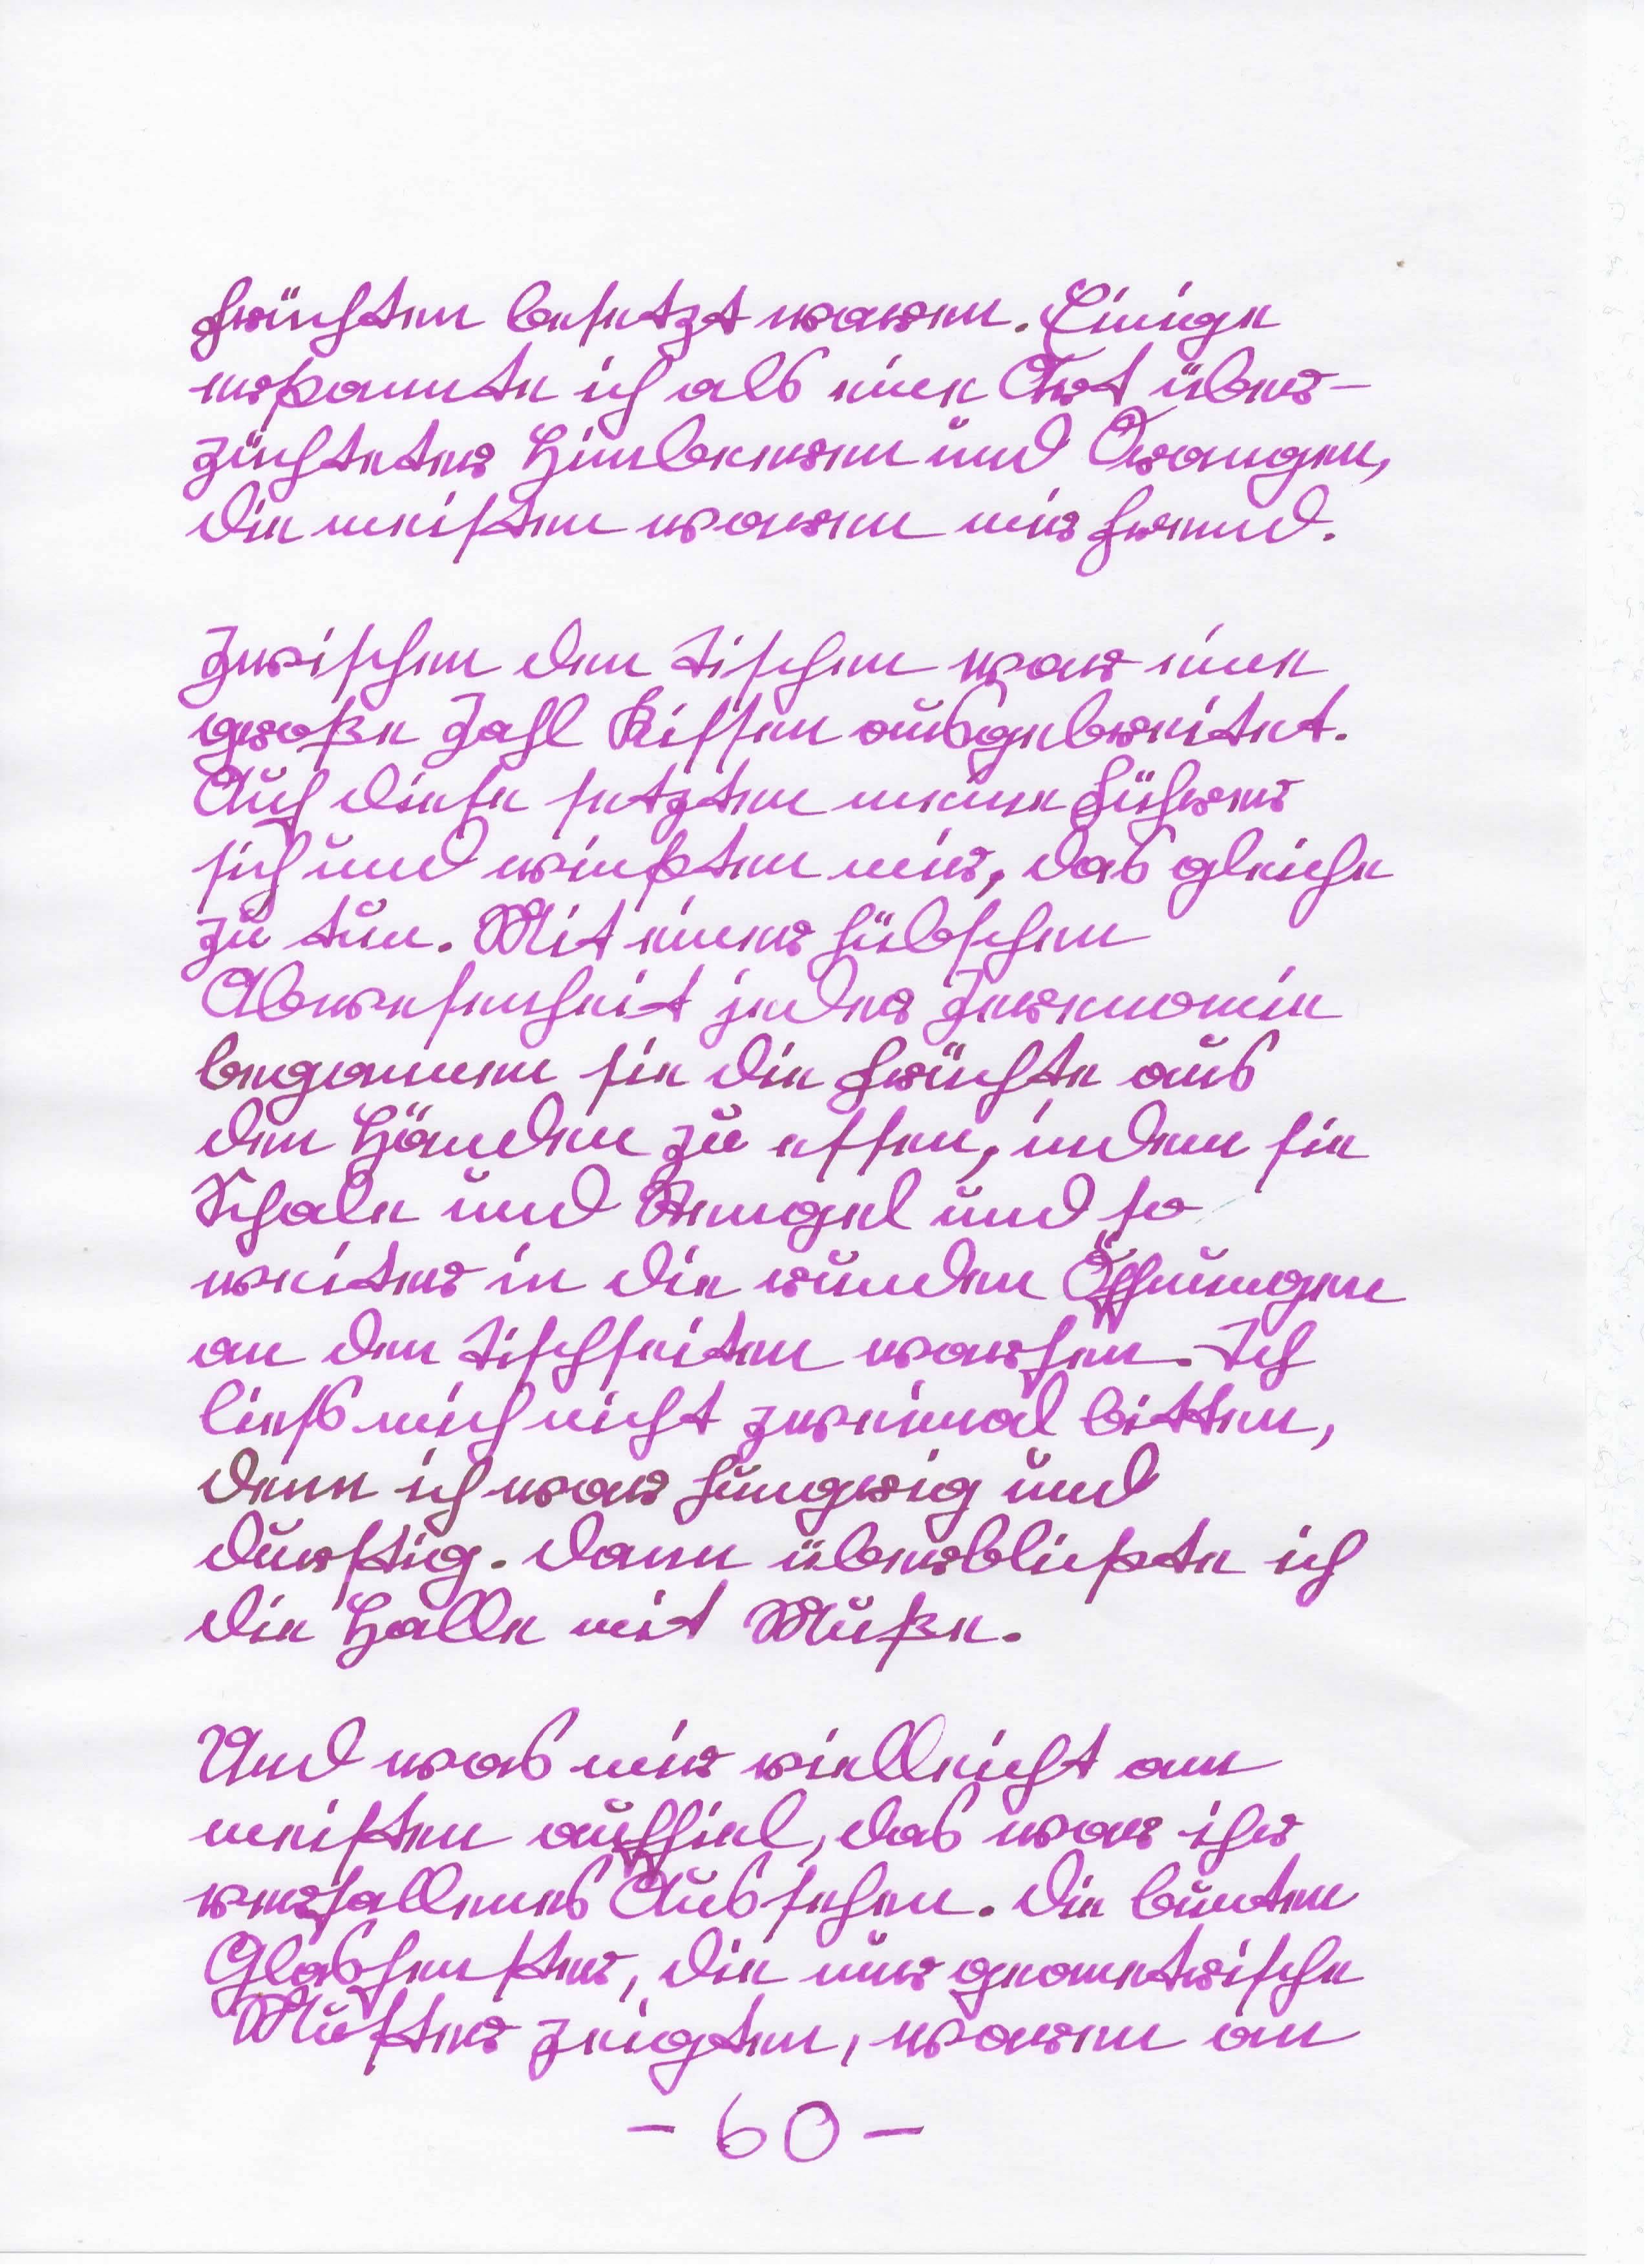 Früchten besetzt waren. Einige
erkannte ich als eine Art über-
züchteter Himbeeren und Orangen,
die meisten waren mir fremd.
Zwischen den Tischen war eine
große Zahl Kissen ausgebreitet.
Auf diese setzten meine Führer
sich und winkten mir, das gleiche
zu tun. Mit einer hübschen
Abwesenheit jeder Zeremonie
begannen sie die Früchte aus
den Händen zu essen, indem sie
Schale und Stengel und so
weiter in die runden Öffnungen
an den Tischseiten warfen. Ich
liess mich nicht zweimal bitten,
denn ich war hungrig und
durstig. Dann überblickte ich
die Halle mit Muße.
Und was mir vielleicht am
meisten auffiel, das war ihr
verfallenes Aussehen. Die bunten
Glasfenster, die nur geometrische
Muster zeigten, waren an
- 60 -